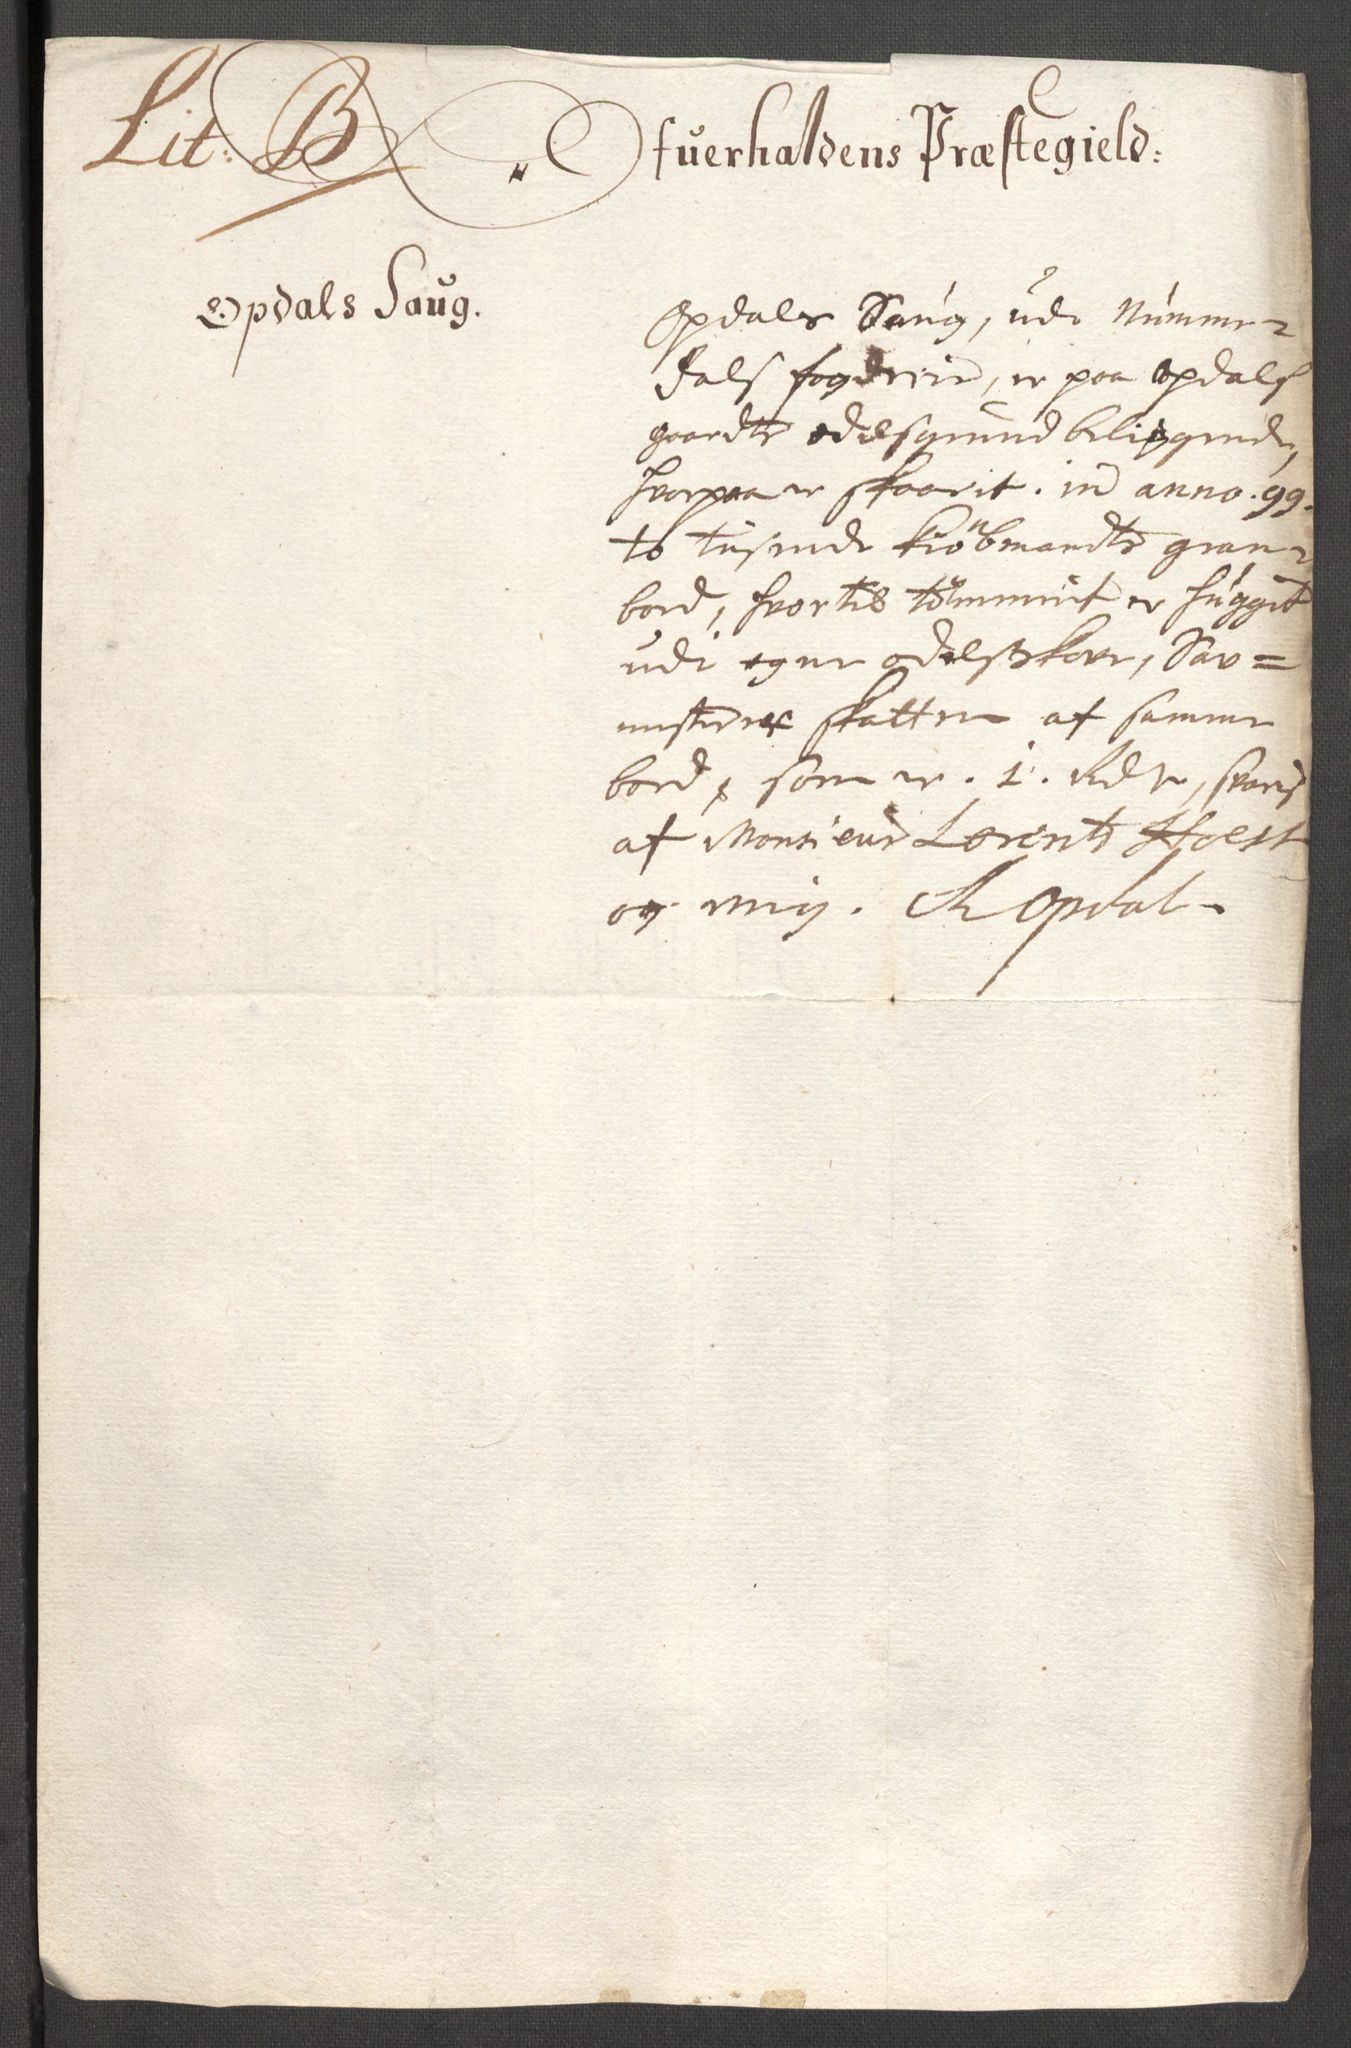 Lit: B
Ofuerhaldens Præstegield:
Opdals Saug.
Opdals Saug, udi Numme-
dals fogderie, er paa Opdals
gaardts odelsgrund beliggende,
hvorpaa er skaarit. in anno. 99.
to tusende kiöbmandts gran-
bord, hvortil tömmerit er hugget
udi egne odelsskove, Sav=
mester skatten af samme
bord, som er. 1. Rdr, svaris
af Monsieur Lorents Holst
og mig. R Opdal